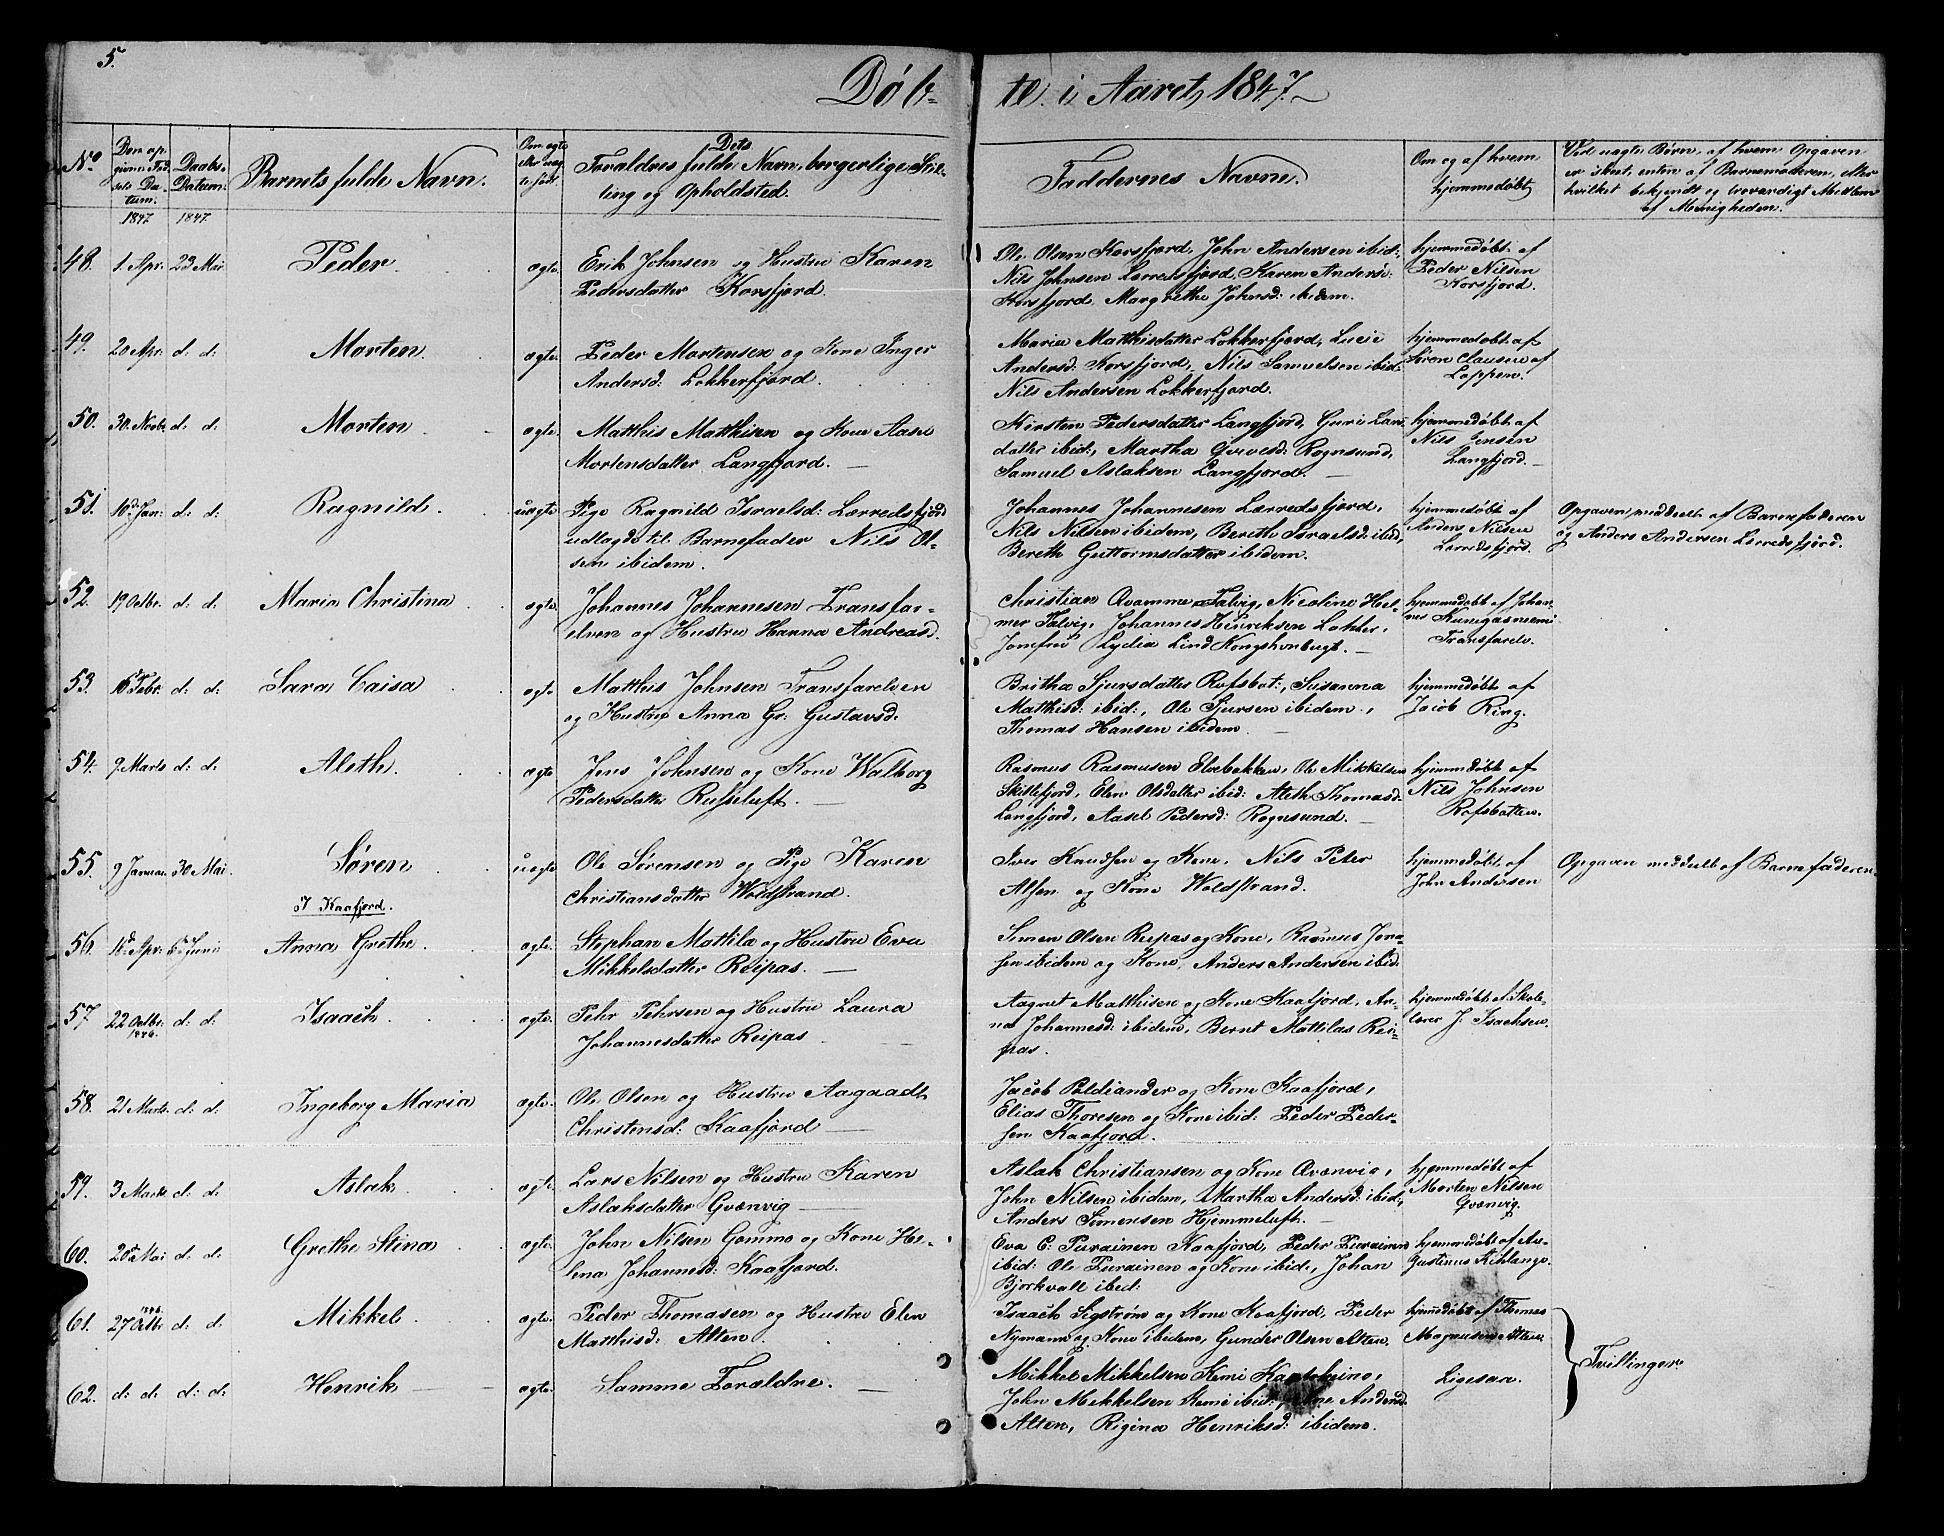 5.
Døb-
te i Aaret 1847.
No
Den op-
givne Fød-
sels Da-
tum.
Daabs-
Datum.
Barnets fulde Navn.
Om ægte
eller uæg-
te født
Dets
Forældres fulde Navn, borgerlige Stil-
ling og Opholdsted.
Faddernes Navne.
Om og af hvem
hjemmedøbt
Ved uægte Børn, af hvem Opgaven
er skeet, enten af Barnemoderen, eller
hvilket bekjendt og troværdigt Medlem
af Menigheden.
1847 1847.
48. 1. Apr. 23 Mai Peder. ægte. Erik Johnsen og Hustru Karen
Pedersdatter Korsfjord.
Ole Olsen Korsfjord, John Andersen ibid:
Nils Johnsen Lerredsfjord, Karen Anders:
Korsfjord, Margrethe Johnsd: ibidem.
hjemmedøbt af
Peder Nilsen
Korsfjord.
49. 20 Apr. d: d: Morten. ægte. Peder Mortensen og Kone Inger
Andersd: Lokkerfjord.
Maria Matthisdatter Lokkerfjord, Lucie
Andersd: Korsfjord, Nils Samuelsen ibid:
Nils Andersen Lokkerfjord.
hjemmedøbt af
Søren Clausen af
Loppen.
50. 30. Novbr. d: d: Morten. ægte. Matthis Matthisen og Kone Aasel
Mortensdatter Langfjord.
Kirsten Pedersdatter Langfjord, Guri Lars-
datter ibid:, Martha Qvivesd: Rognsund,
Samuel Aslaksen Langfjord.
hjemmedøbt af
Nils Jensen
Langfjord.
51. 16d Jan: d: d: Ragnild. uægte Pige Ragnild Israelsd: Lærredsfjord
udlagde til Barnefader Nils Ol-
sen ibidem.
Johannes Johannesen Lærredsfjord,
Nils Nilsen ibidem, Bereth Israelsd: ibid,
Bereth Guttormsdatter ibidem.
hjemmedøbt af
Anders Nilsen
Lerredsfjord.
Opgaven meddeelt af Barnefaderen
og Anders Andersen Lerredsfjord.
52. 19 Octbr. d: d: Maria Christina ægte Johannes Johannesen Transfar-
elven og Hustru Hanna Andreasd.
Christian Qvamme Talvig, Nicoline Hel-
mer Talvig, Johannes Henriksen Lokker,
Jomfru Lydia Lind Kongshavnbugt.
hjemmedøbt af Johan-
nes Kunegasniemi
Transfarelv.
53. 16 Febr. d: d: Sara Caisa ægte Matthis Johnsen Transfarelven
og Hustru Anna Gr: Gustavsd.
Britha Sjursdatter Rafsbot:, Susanna
Matthisd: ibid:, Ole Sjursen ibidem,
Thomas Hansen ibidem.
hjemmedøbt af
Jacob Ring.
54. 9. Marts d: d: Aleth. ægte Jens Johnsen og Kone Walborg
Pedersdatter Russeluft.
Rasmus Rasmusen Elvebakken, Ole Mikkelsen
Skillefjord, Elen Olsdatter ibid: Aleth Thomasd:
Langfjord, Aasel Pedersd: Rognsund.
hjemmedøbt af
Nils Johnsen
Rafsbotten.
55. 9 Januar 30 Mai. Søren uægte Ole Sørensen og Pige Karen
Christiansdatter Woldstrand.
Iver Knudsen og Kone, Nils Peter
Alsen og Kone Woldstrand.
hjemmedøbt af
John Andersen
Opgaven meddeelt af Barnefaderen.
I Kaafjord.
56. 16d Apr: 6te Juni Anna Grethe. ægte. Stephan Mattila og Hustru Eva
Mikkelsdatter Reipas.
Simon Olsen Reipas og Kone, Rasmus Jora-
sen ibidem og Kone, Anders Andersen ibid.
57 22 Octbr. 1846. d: d: Isaach. ægte. Petr Petersen og Hustru Laura
Johannesdatter Reipas
Aagnet Matthisen og Kone Kaafjord, An-
na Johannesd: ibidem, Bernt Mattilas Rei-
pas.
hjemmedøbt af Skole-
lærer J. Isachsen.
58. 21 Marts. d: d: Ingeborg Maria ægte. Ole Olsen og Hustru Aagaadt
Christensd: Kaafjord
Jacob Paldiander og Kone Kaafjord,
Elias Thoresen og Kone ibid: Peder Peder-
sen Kaafjord.
59. 3 Marts d: d: Aslak ægte. Lars Nilsen og Hustru Karen
Aslaksdatter Qvænvig
Aslak Christiansen og Kone Qvænvig,
John Nilsen ibidem, Martha Andersd: ibid,
Anders Simensen Hjemmeluft.
hjemmedøbt af
Morten Nilsen
Qvænvig.
60. 20d Mai d: d: Grethe Stina ægte. John Nilsen Gammo og Kone He-
lena Johannesd: Kaafjord.
Eva C. Purainen Kaafjord, Peder Purainen
ibid: Ole Purainen og Kone ibid:, Johan
Bjorkvall ibid:
hjemmedøbt af Au-
gustinus Kihlange.
61. 1846. 27 Octbr d: d: Mikkel. ægte. Peder Thomasen og Hustru Elen
Matthisd: Alten.
Isaach Sigstrøm og Kone Kaafjord, Peder
Nymann og Kone ibidem, Gunder Olsen Alten.
hjemmedøbt af Thomas
Magnusen Alten
Tvillinger.
62. d: d: d: d: Henrik ægte. Samme Forældre.
Mikkel Mikkelsen Kemi Kautokeino,
John Mikkelsen Kemi ibid:, Andersd.
Alten, Rigina Henriksd: ibidem.
Ligesaa.